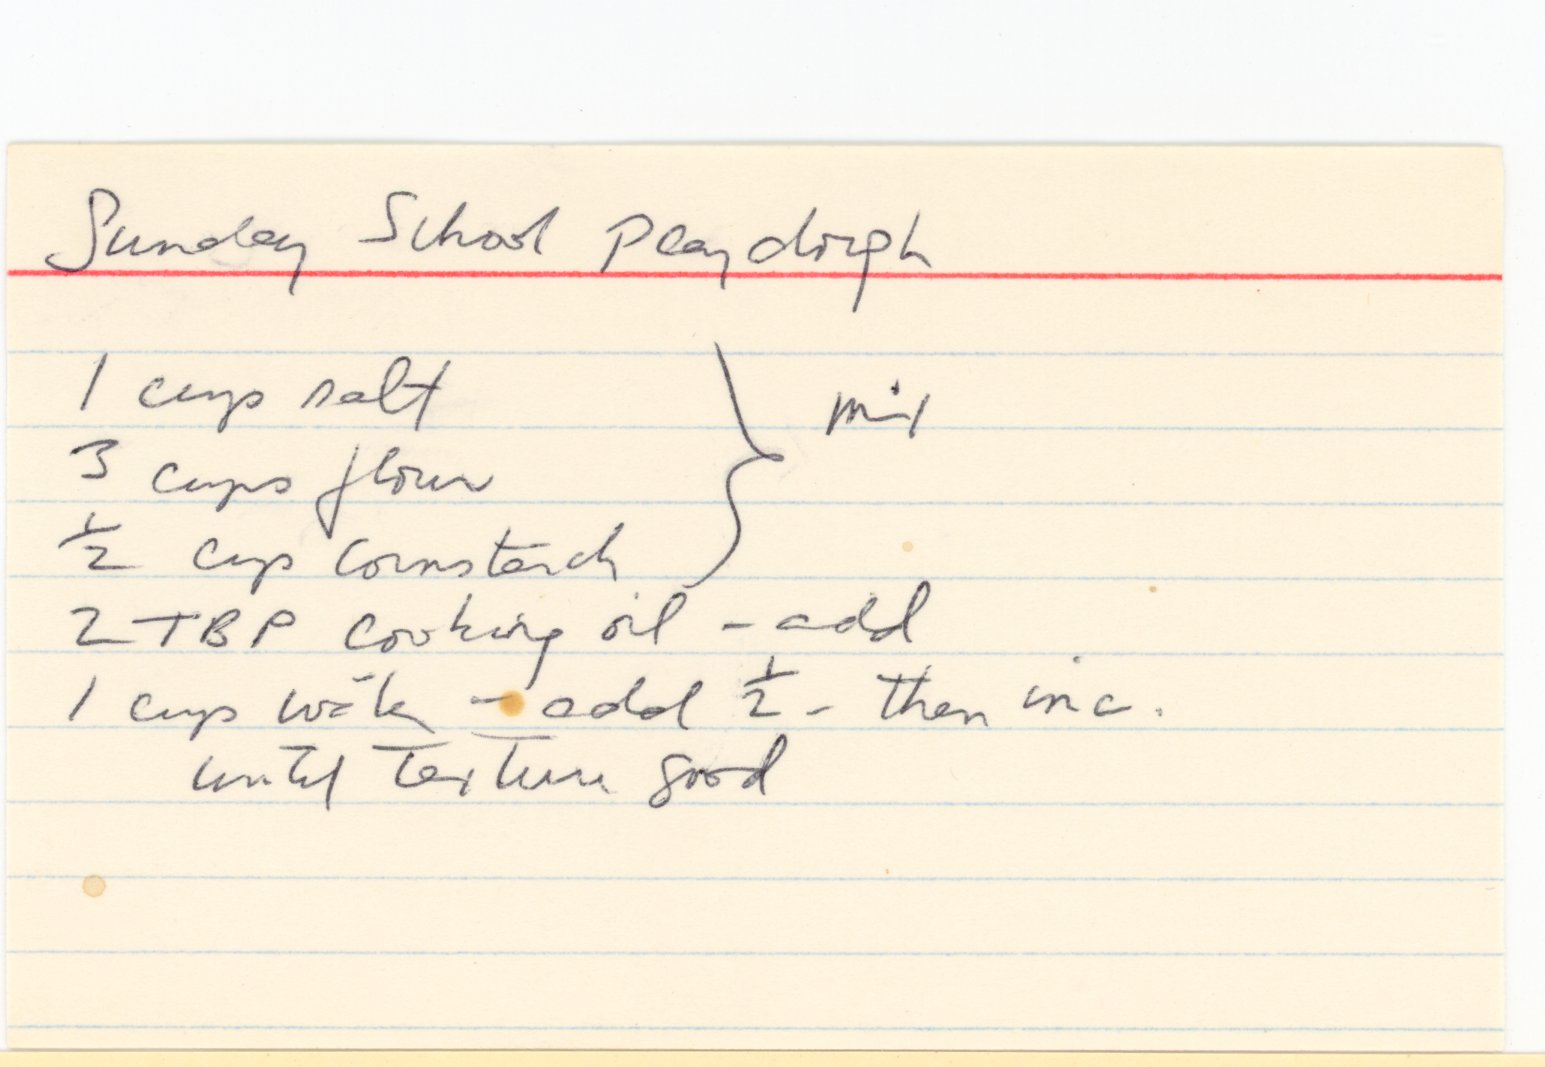 Sunday School Playdough
1 cup salt
3 cups flour } mix
1/2 cup cornstarch
2 TBP cooking oil - add
1 cup water - add 1/2 - then inc.
until texture good